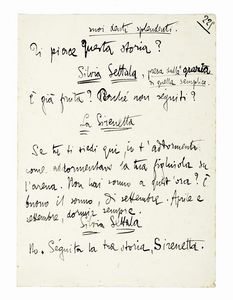 suoi denti splendenti.
291
Ti piace questa storia?
Silvia Settala, presa dalla
di quella semplice.
È già finita? Perché non seguiti?
La Sirenetta
Se tu ti siedi qui, io t'addormento
come addormentavo la tua figliuola su
l'arena. Non hai sonno a quest'ora? È
buono il sonno, di settembre. Aprile e
settembre, dormir sempre.
Silvia Settala
No. Séguita la tua storia, Sirenetta.